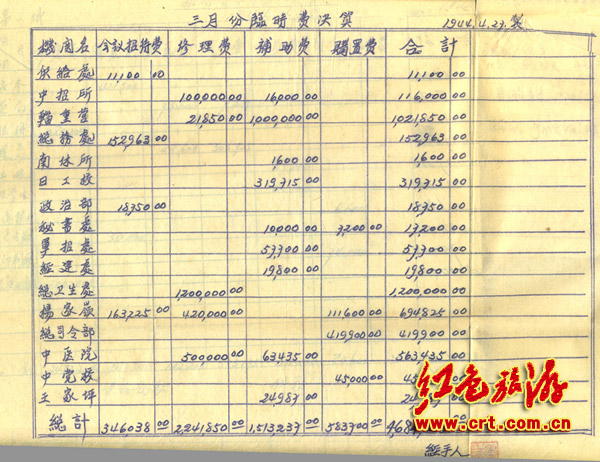 三月份臨時費决算 1944.4.27.製
機関名 会议招待费 修理费 補助费 購置费 合計
供给處 11,100 00 11,100 00
中招所 100,000 00 16,000 00 116,000 00
輜重营 21,850 00 1,000,000 00 1,021,850 00
總務處 152963 00 152963 00
南林所 1,600 00 1,600 00
日工校 319,715 00 319,715 00
政治部 18,750 00 18,750 00
秘書處 10,000 00 7,200 00 17,200 00
軍招處 57,700 00 57,700 00
經建處 19,800 00 19,800 00
總卫生處 1,200,000 00 1,200,000 00
楊家嶺 163,225 00 420,000 00 111600 00 694825 00
總司令部 419900 00 419,900 00
中医院 500,000 00 63,435 00 563,435 00
中党校 45,000 00
王家坪 24,987 00
總計 346,038 00 2,241,850 00 1,513,237 00 583,700 00
經手人
红色旅游
www.crt.com.cn